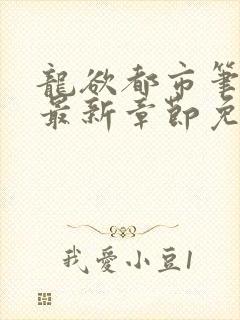 龍欲都市筆
最新章節免
我愛小豆1